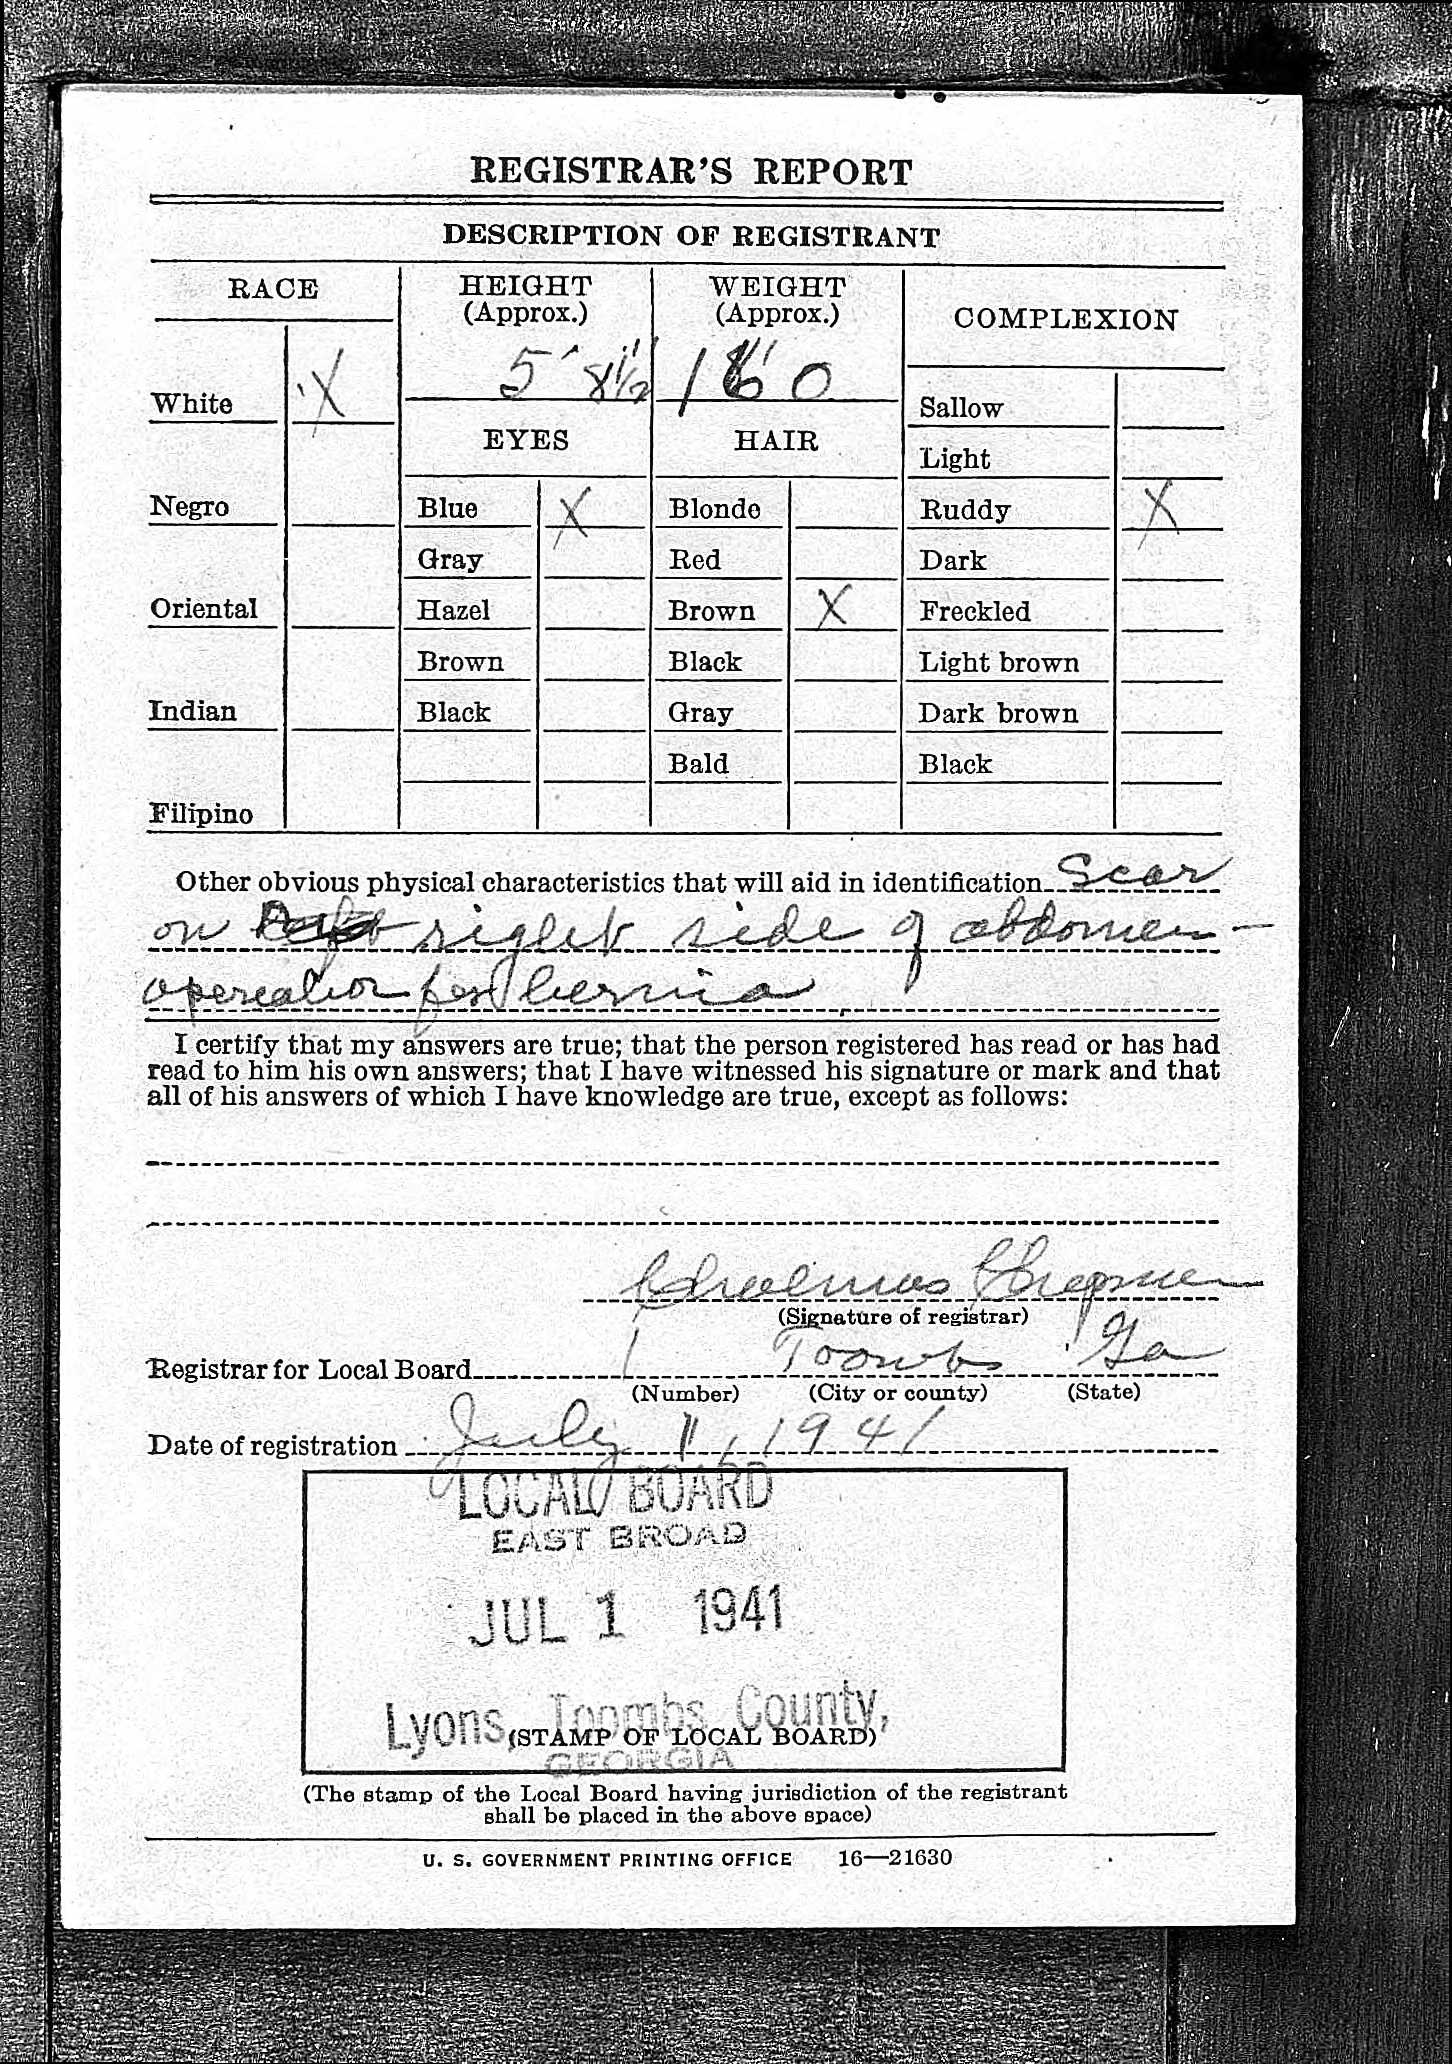 REGISTRAR'S REPORT
DESCRIPTION OF REGISTRANT
RACE
HEIGHT
(Approx.)
WEIGHT
(Approx.)
COMPLEXION
5' 8 1/2"
White X
Sallow
EYES
HAIR
Light
Negro
Blue X
Blonde
Ruddy X
Gray
Red
Dark
Oriental
Hazel
Brown X
Freckled
Brown
Black
Light brown
Indian
Black
Gray
Dark brown
Bald
Black
Filipino
Other obvious physical characteristics that will aid in identification Scar
on right side of abdomen -
operation for hernia
I certify that my answers are true; that the person registered has read or has had
read to him his own answers; that I have witnessed his signature or mark and that
all of his answers of which I have knowledge are true, except as follows:
(Signature of registrar)
Registrar for Local Board 1 Toombs Ga
(Number) (City or county) (State)
Date of registration July 1, 1941
LOCAL BOARD
EAST BROAD
JUL 1 1941
Lyons, Toombs County,
(STAMP OF LOCAL BOARD)
GEORGIA
(The stamp of the Local Board having jurisdiction of the registrant
shall be placed in the above space)
U. S. GOVERNMENT PRINTING OFFICE 16—21630